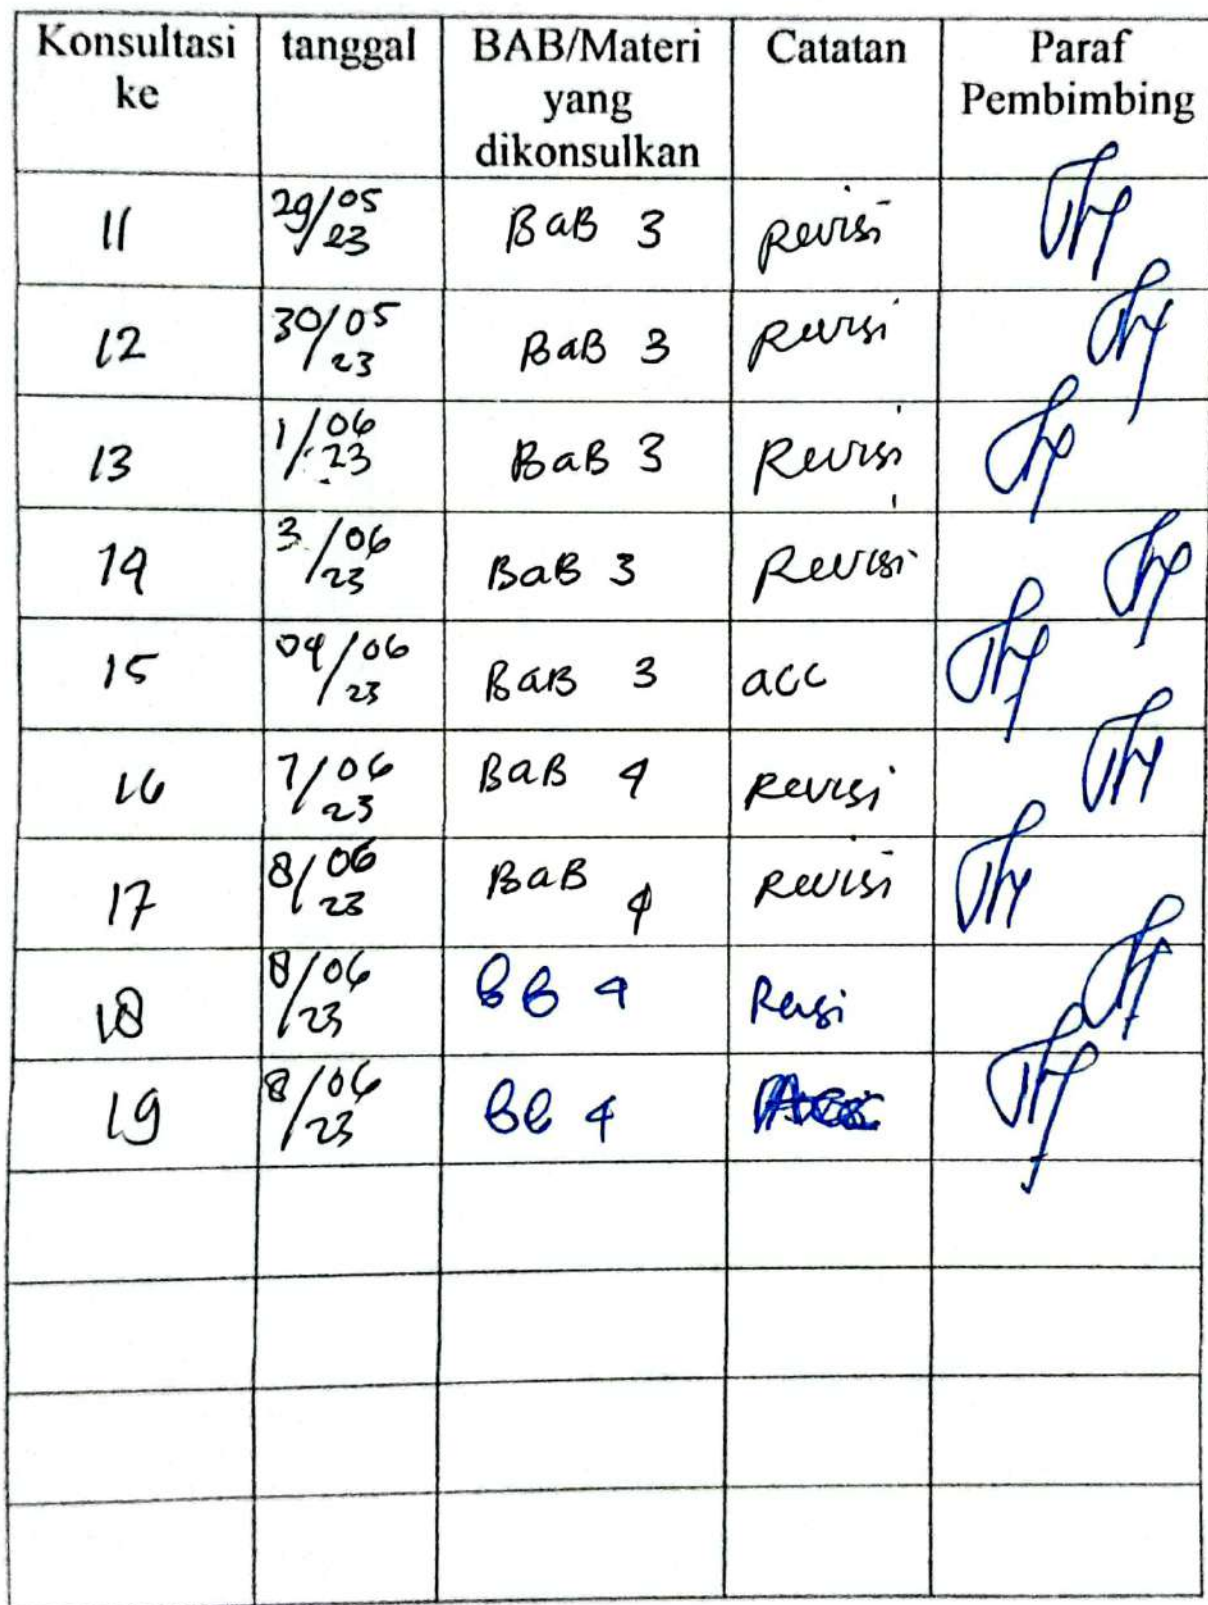 Konsultasi ke tanggal BAB/Materi yang dikonsulkan Catatan Paraf Pembimbing
11 29/05 23 BaB 3 Revisi
12 30/05 23 BaB 3 Revisi
13 1/06 23 BaB 3 Revisi
14 3/06 23 BaB 3 Revisi
15 04/06 23 BaB 3 acc
16 7/06 23 BaB 4 Revisi
17 8/06 23 BaB 4 Revisi
18 8/06 23 BB 4
19 8/06 23 BB 4